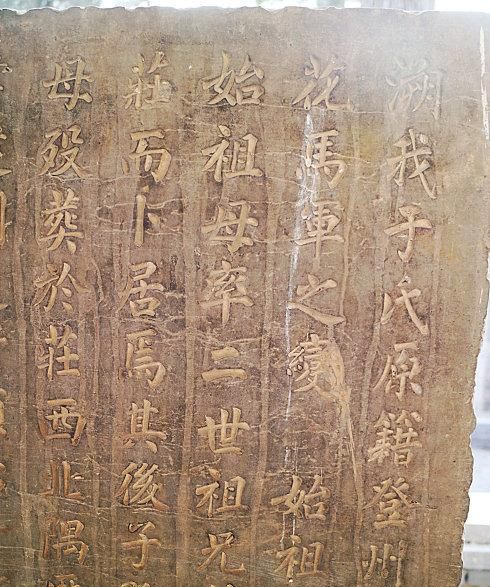 溯我于氏原籍登州
花馬軍之變始祖
始祖母率二世祖兄
莊而卜居焉其後子
母殁葬於莊西北隅